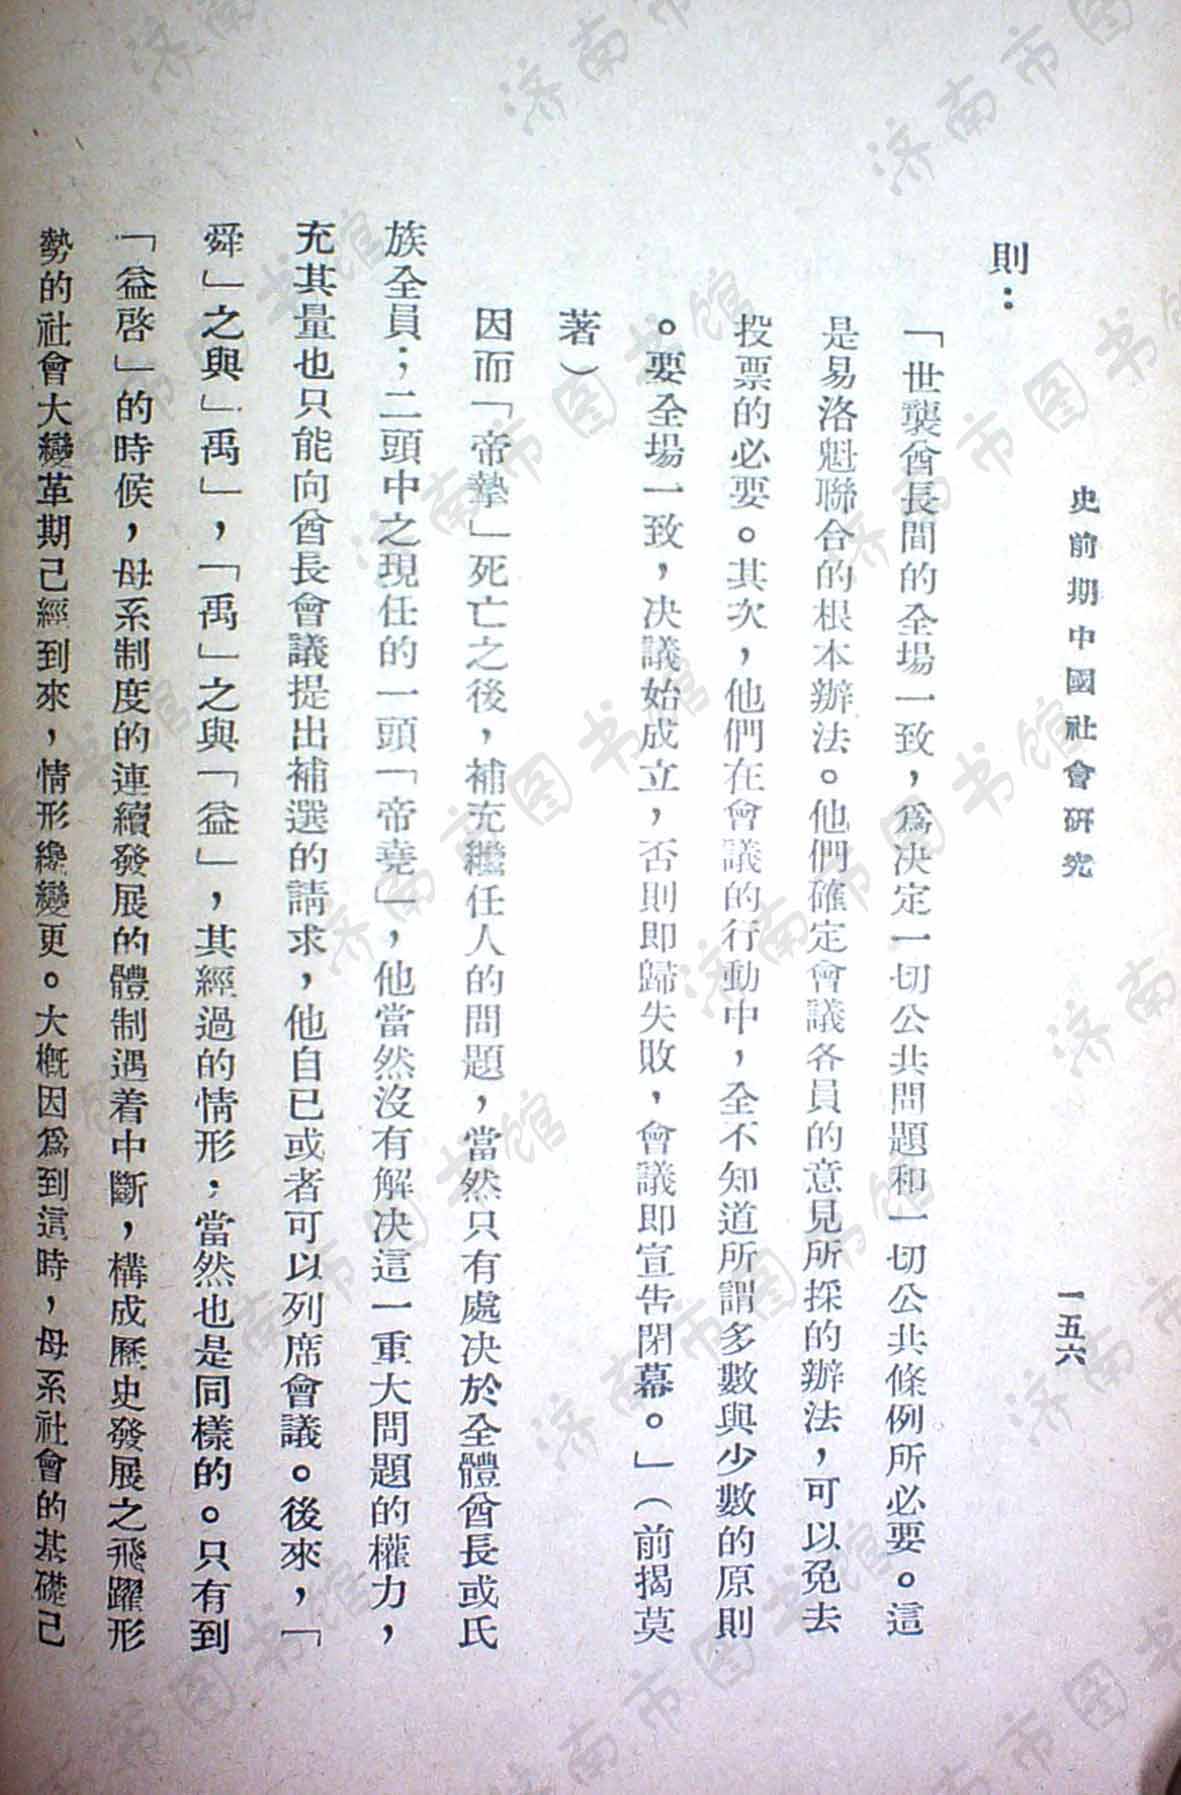 史前期中國社會研究
一五六
則：
「世襲酋長間的全場一致，爲決定一切公共問題和一切公共條例所必要。這
是易洛魁聯合的根本辦法。他們確定會議各員的意見所採的辦法，可以免去
投票的必要。其次，他們在會議的行動中，全不知道所謂多數與少數的原則
。要全場一致，決議始成立，否則即歸失敗，會議即宣告閉幕。」（前揭莫
著）
因而「帝摯」死亡之後，補充繼任人的問題，當然只有處決於全體酋長或氏
族全員；二頭中之現任的一頭「帝堯」，他當然沒有解決這一重大問題的權力，
充其量也只能向酋長會議提出補選的請求，他自已或者可以列席會議。後來，「
舜」之與」禹」，「禹」之與「益」，其經過的情形；當然也是同樣的。只有到
「益啓」的時候，母系制度的連續發展的體制遇着中斷，構成歷史發展之飛躍形
勢的社會大變革期己經到來，情形纔變更。大概因爲到這時，母系社會的基礎己
济南市图书馆